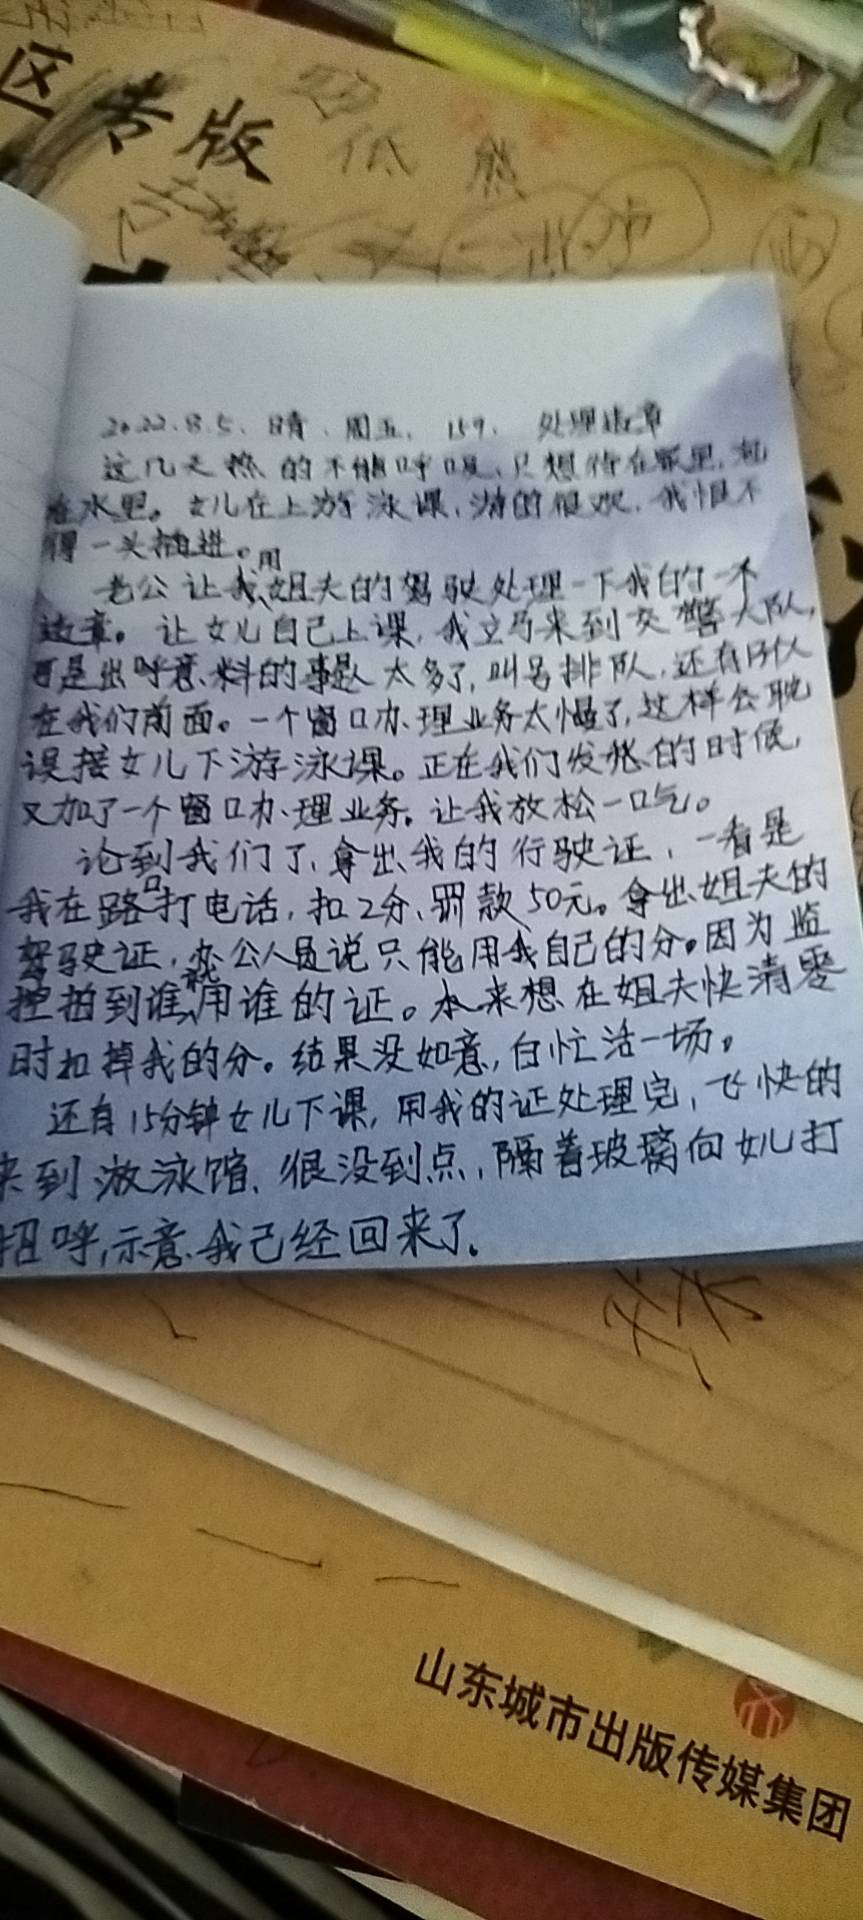 区专版
低 熊
2022.8.5、晴、周五、159、处理违章
这几天热的不能呼吸、只想待在家里,泡
在水里。女儿在上游泳课,游的很欢,我恨不
得一头插进。
老公让我用姐夫的驾驶处理一下我的一个
违章。让女儿自己上课,我立马来到交警大队,
可是出呼意料的事是人太多了,叫号排队,还有13伙
在我们前面。一个窗口办理业务太慢了,这样会耽
误接女儿下游泳课。正在我们发愁的时候,
又加了一个窗口办理业务。让我放松一口气。
论到我们了,拿出我的行驶证,一看是
我在路口打电话,扣2分、罚款50元。拿出姐夫的
驾驶证,办公人员说只能用我自己的分。因为监
控拍到谁就用谁的证。本来想在姐夫快清零
时扣掉我的分。结果没如意,白忙活一场。
还有15分钟女儿下课,用我的证处理完,飞快的
来到游泳馆、很没到点,隔着玻璃向女儿打
招呼,示意我己经回来了。
山东城市出版传媒集团